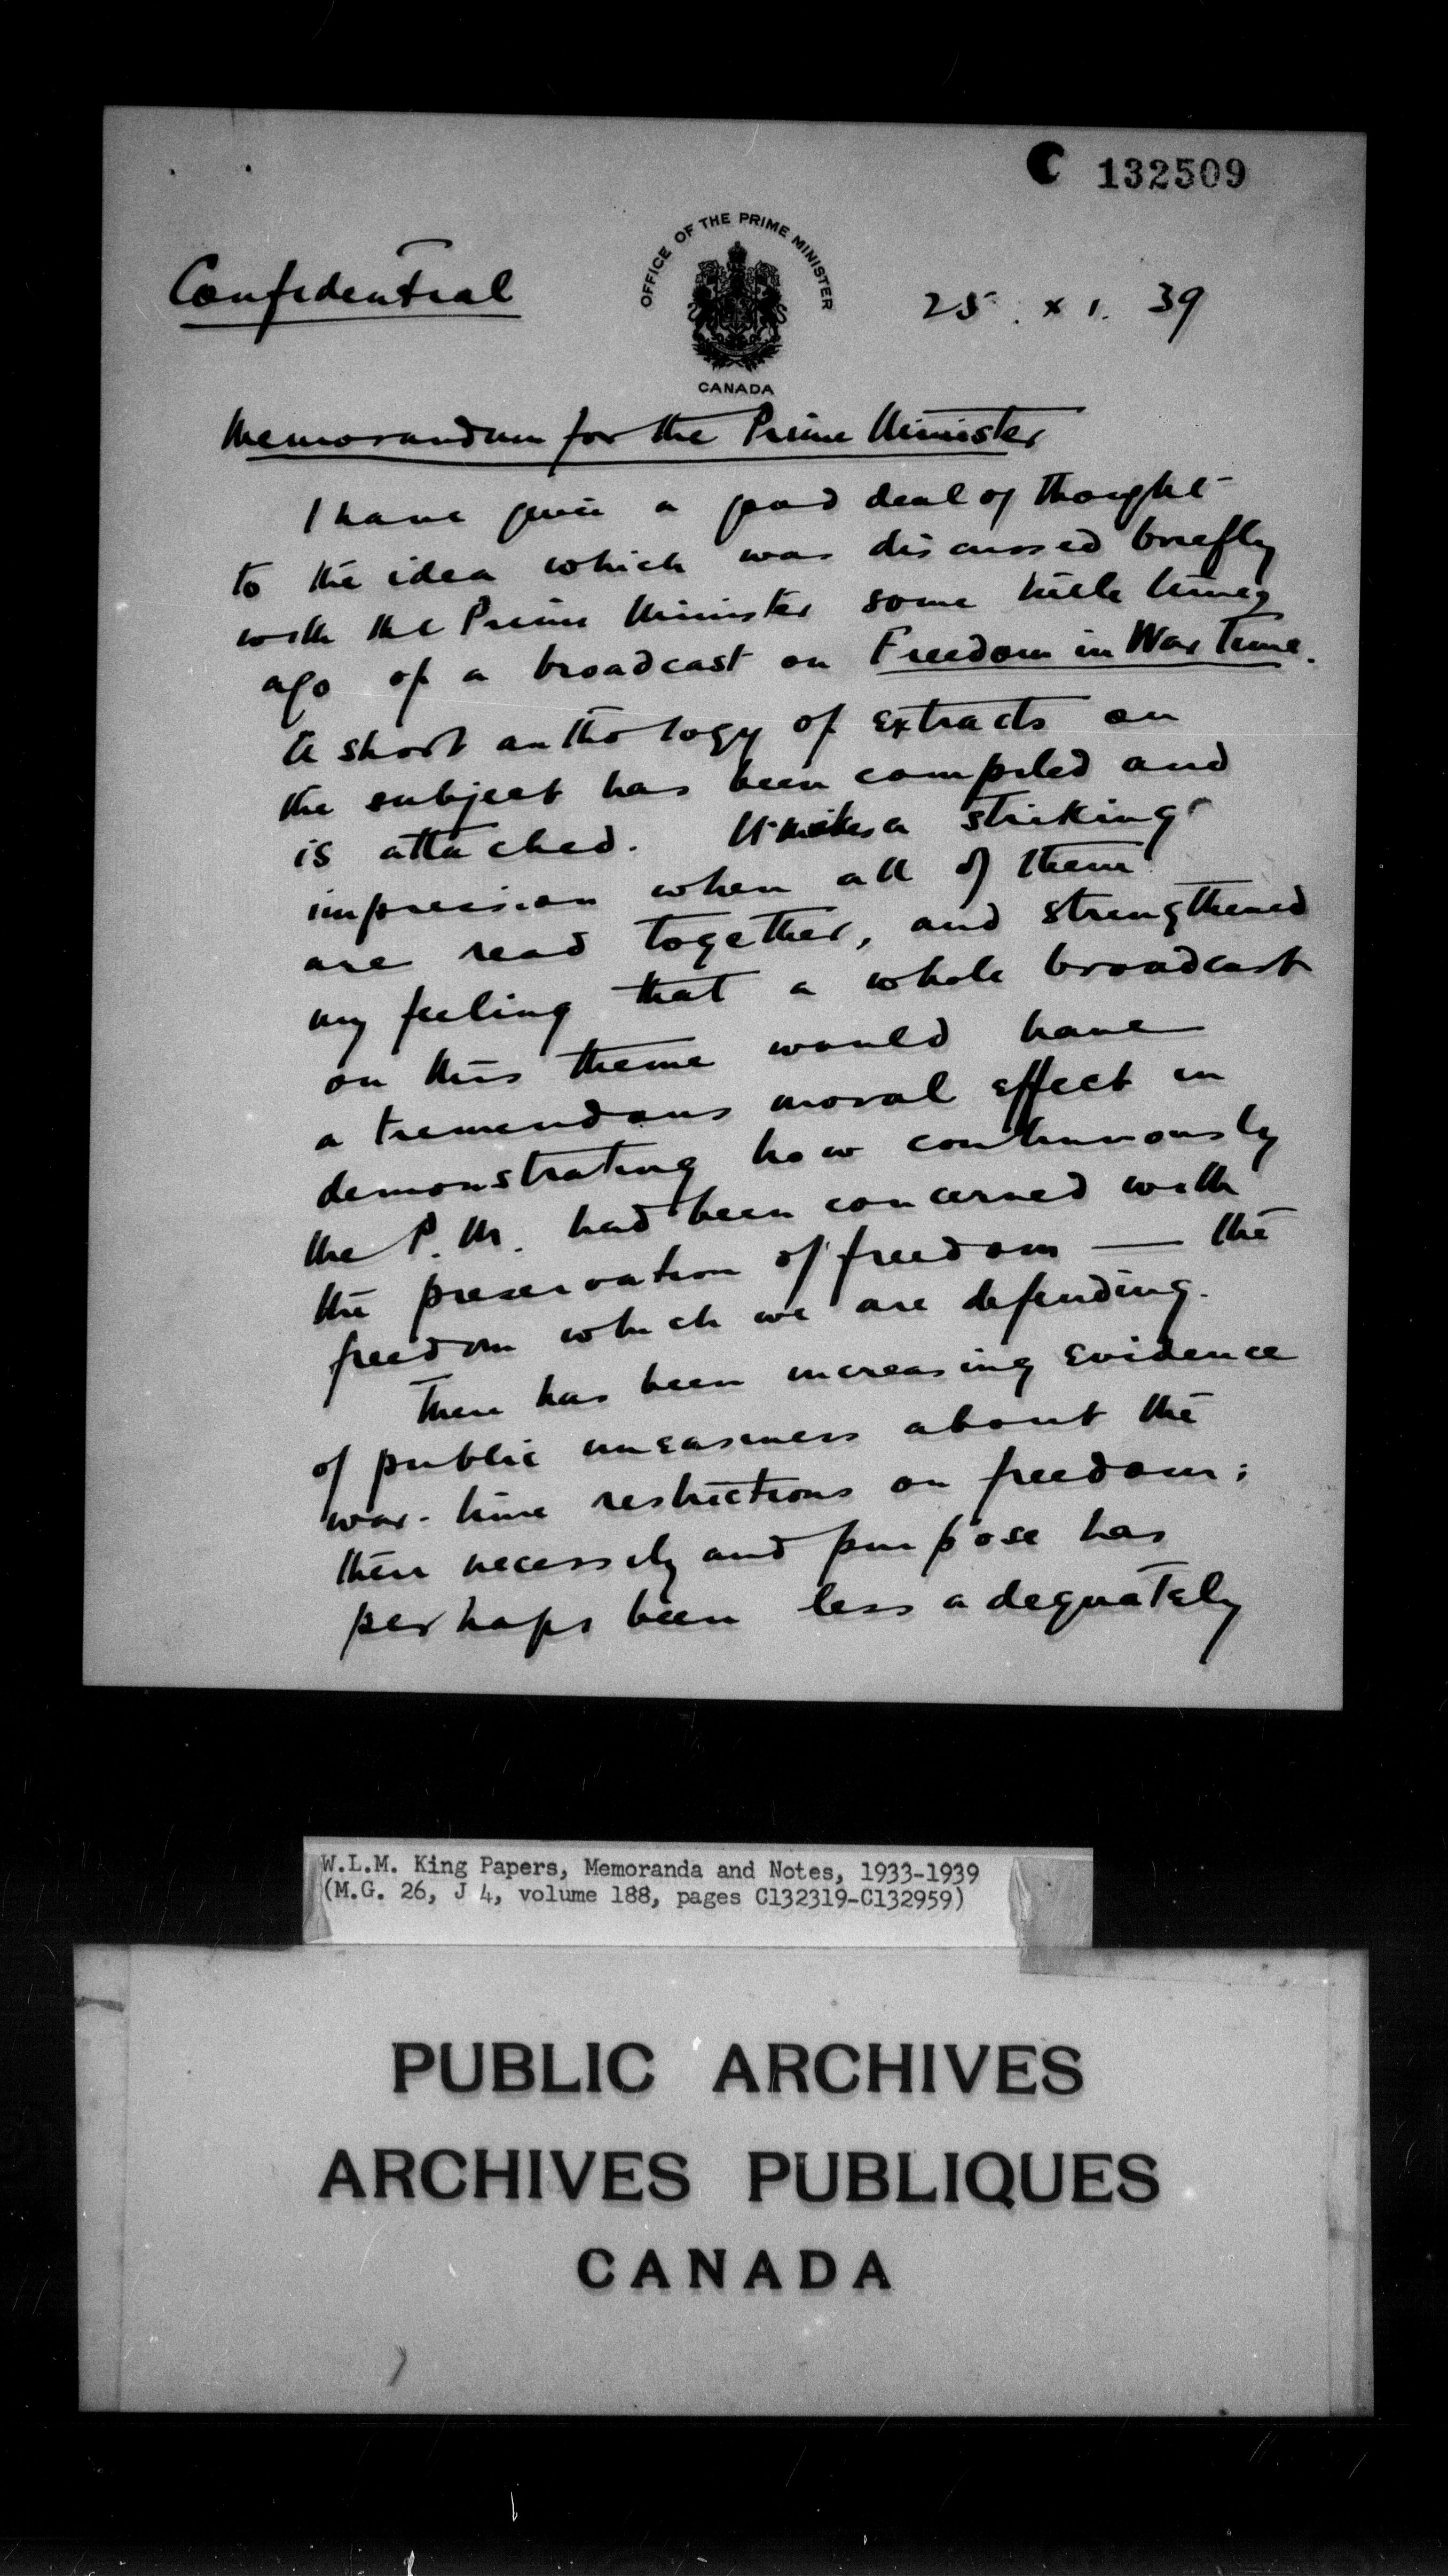 C 132509
OFFICE OF THE PRIME MINISTER
CANADA
Confidential
25. XI. 39
Memorandum for the Prime Minister
I have given a good deal of thought
to the idea which was discussed briefly
with the Prime Minister some little time
ago of a broadcast on Freedom in War Time.
A short anthology of extracts on
the subject has been compiled and
is attached. It makes a striking
impression when all of them
are read together, and strengthened
my feeling that a whole broadcast
on this theme would have
a tremendous moral effect in
demonstrating how continuously
the P.M. had been concerned with
the preservation of freedom — the
freedom which we are defending.
There has been increasing evidence
of public uneasiness about the
war-time restrictions on freedom;
their necessity and purpose has
perhaps been less adequately
W.L.M. King Papers, Memoranda and Notes, 1933-1939
(M.G. 26, J 4, volume 188, pages C132319-C132959)
PUBLIC ARCHIVES
ARCHIVES PUBLIQUES
CANADA